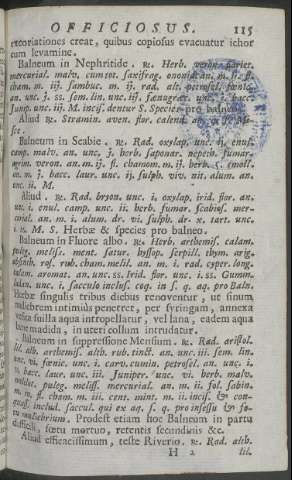 OFFICIOSUS. 115
excoriationes creat, quibus copiosus evacuatur ichor
cum levamine.
Balneum in Nephritide. ℞. Herb. veron. pariet.
mercurial. malv. cum tot. saxifrag. ononid. an. m. ß. fl.
cham. m. iij. sambuc. m. ij. rad. alt. petrosel. fœnic.
an. unc. j. ss. sem. lin. unc. iij. fœnugræc. unc. j. bacc.
Junip. unc. iij. M. incis. dentur S. Species pro balneo.
Aliud ℞. Stramin. aven. flor. calend. an.
Balneum in Scabie. ℞. Rad. oxylap. unc. ij. enul.
camp. malv. an. unc. j. herb. saponar. nepeth. fumar.
agrim. veron. an. m. ij. fl. chamom. m. ij. herb.
an. m. j. bacc. laur. unc. ij. sulph. viv. nit. alum. an.
unc. ii. M.
Aliud. ℞. Rad. bryon. unc. i. oxylap. irid. flor. an.
unc. i. enul. camp. unc. ii. herb. fumar. scabios. mer-
curial. an. m. i. alum. dr. vi. sulph. dr. x. tart. unc.
i. ℞. M. S. Herbæ & species pro balneo.
Balneum in Fluore albo. ℞. Herb. arthemis. calam.
puleg. meliss. menth. satur. hyssop. serpill. thym. orig.
absinth. ros. rub. cham. melil. an. m. i. rad. cyper. long.
calam. aromat. an. unc. ss. irid. flor. unc. i. ss. Gumm.
ladan. unc. i. sacculo inclus. coq. in s. q. aq. pro Baln.
Herbæ singulis tribus diebus renoventur, ut sinum
muliebrem intimiùs penetret, per syringam, annexa
vesica illa aqua intropellatur, vel lana, eadem aqua
bene madida, in uteri collum intrudatur.
Balneum in suppressione Mensium. ℞. Rad. aristol.
lil. alb. arthemis. alth. rub. tinct. an. unc. iii. sem. lin.
unc. iii. fœnic. unc. i. carv. cumin. petrosel. an. unc. i.
bacc. laur. unc. iii. Juniper. unc. vi. herb. malv.
puleg. meliss. mercurial. an. m. ii. fol. sabin.
m. fl. cham. m. iii. cent. mint. m. ii. incis. & con-
inclus. saccul. qui ex aq. s. q. pro insessu & fo-
muliebrium. Prodest etiam hoc Balneum in partu
difficili, fœtu mortuo, retentis secundinis &c.
Aliud efficacissimum, teste Riverio. ℞. Rad. alth.
H 2 lil.